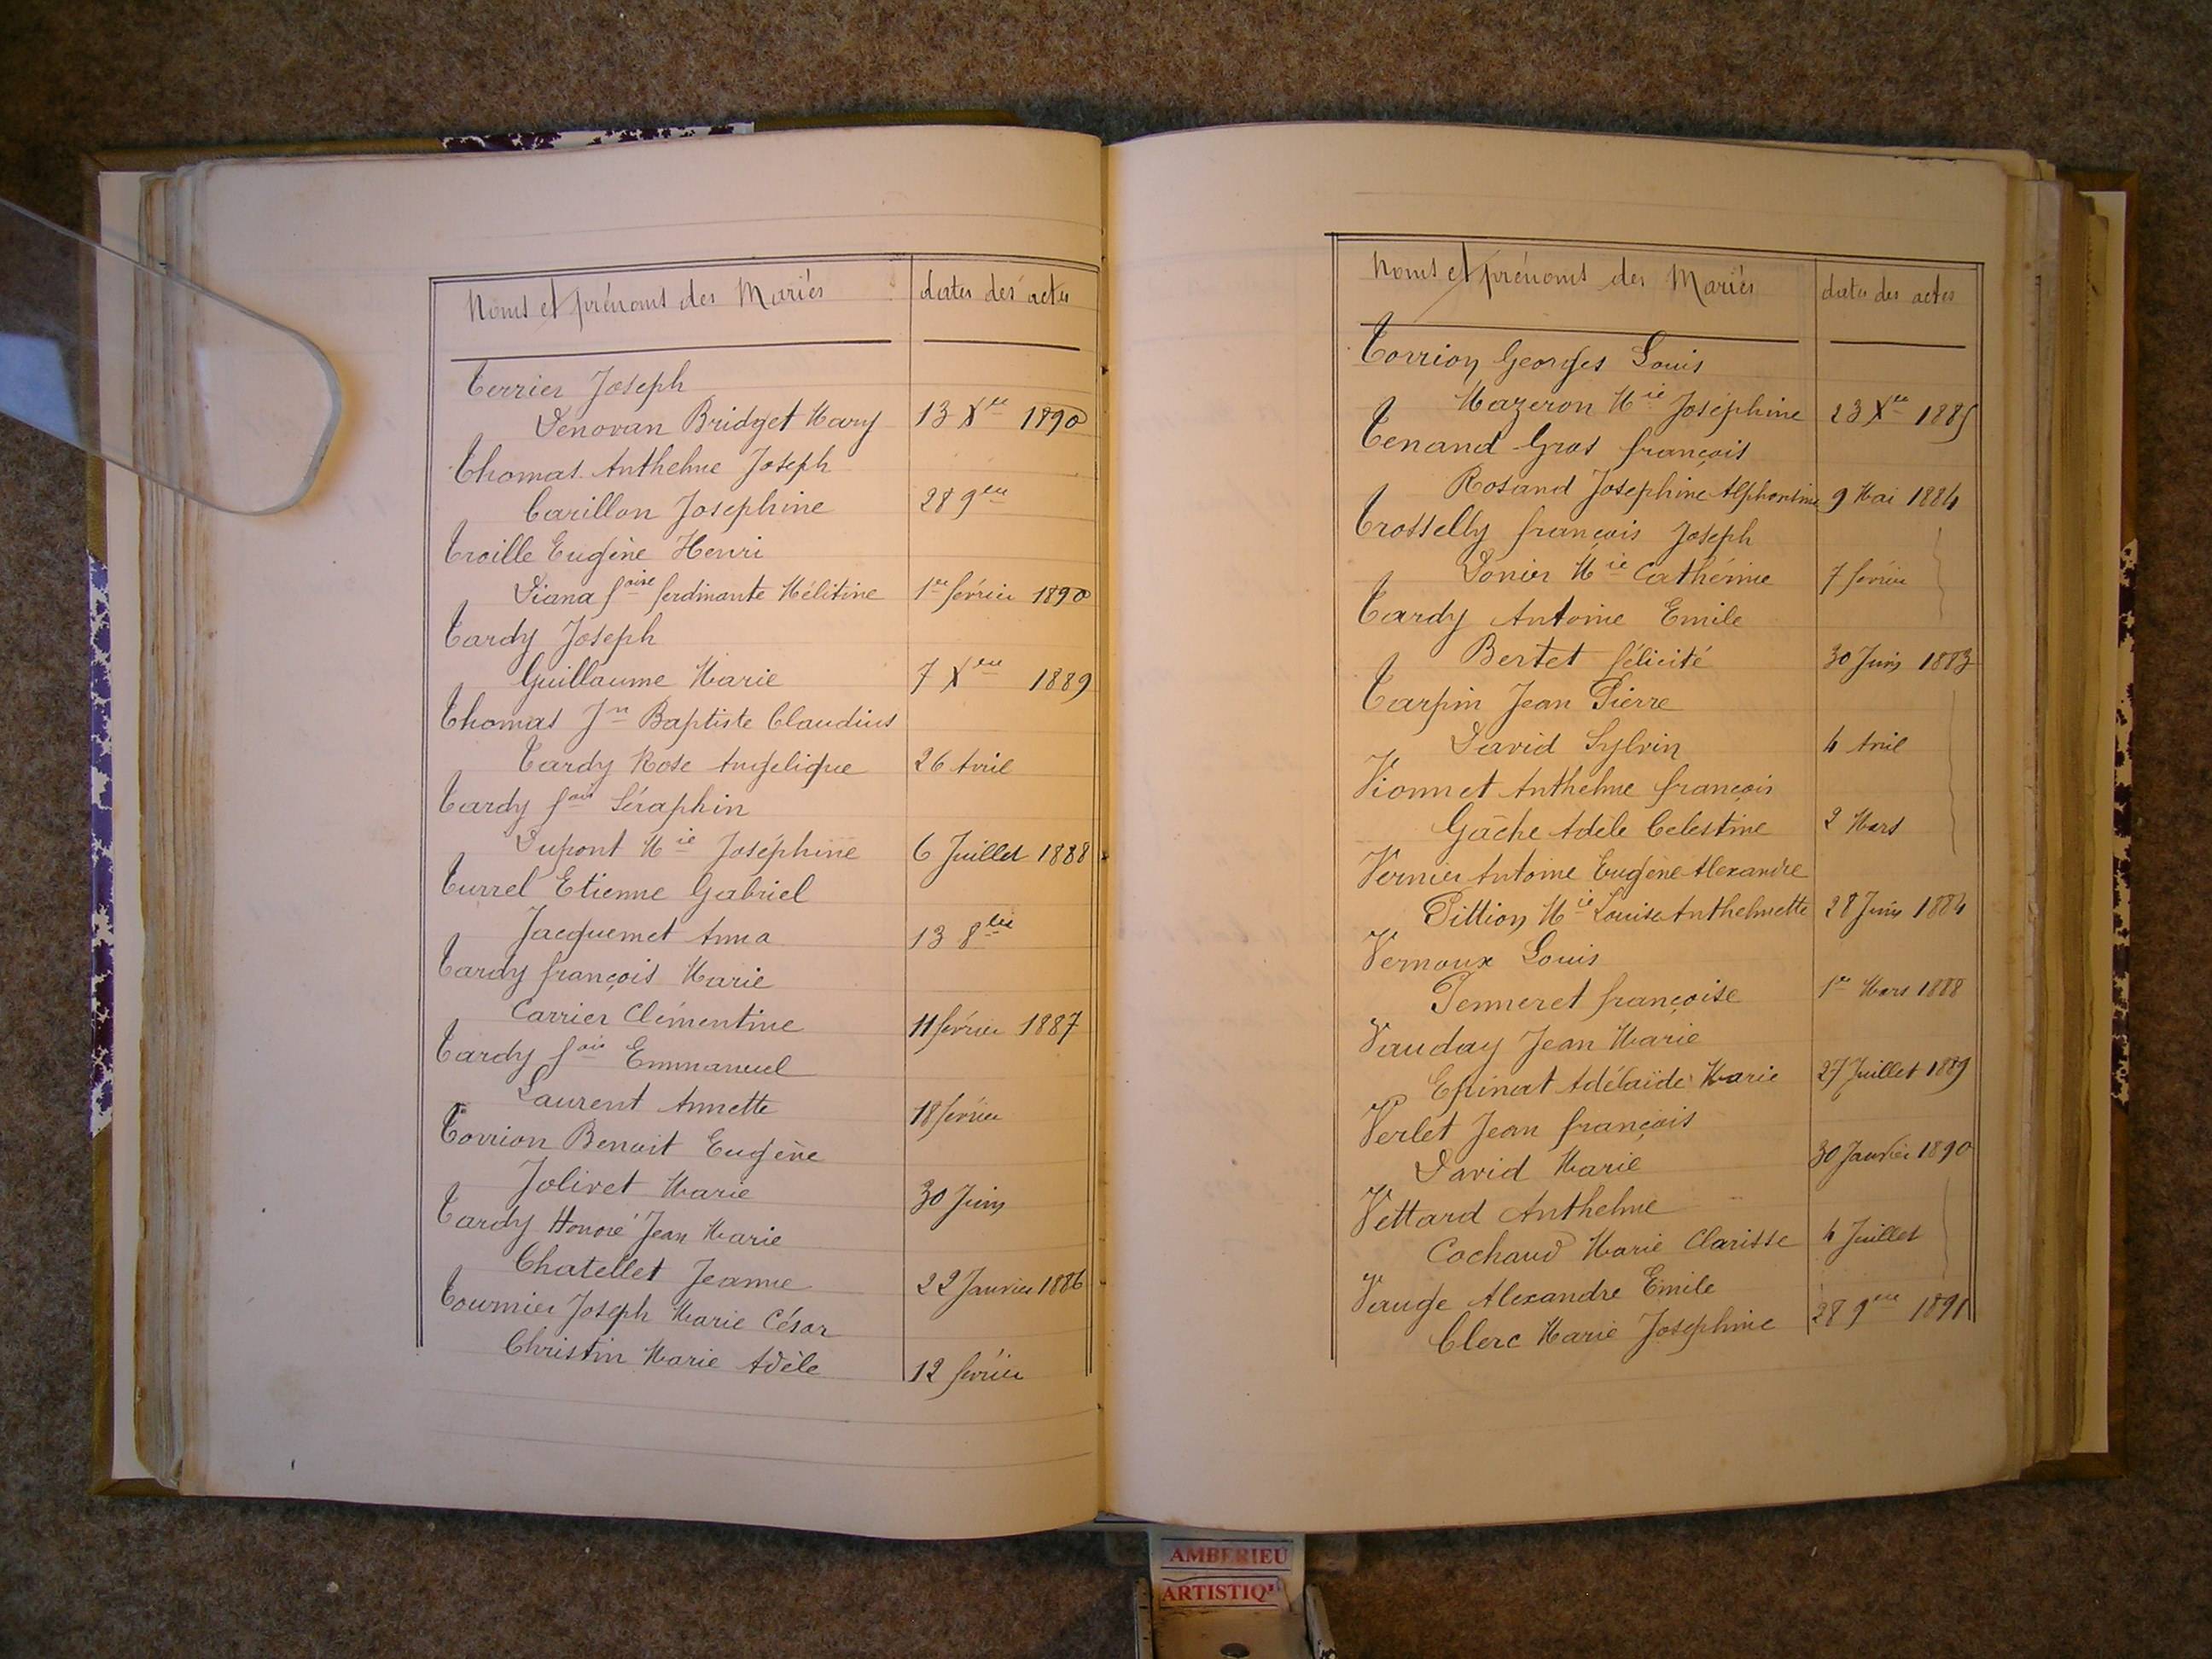 Noms et prénoms des Mariés dates des actes
Terrier Joseph
Denovan Bridget Mary 13 Xbre 1890
Thomas Anthelme Joseph
Carillon Josephine 28 9bre
Troille Eugène Henri
Diana foise ferdinante Mélitine 1er février 1890
Tardy Joseph
Guillaume Marie 7 Xbre 1889
Thomas Jn Baptiste Claudius
Tardy Rose Angelique 26 Avril
Tardy fois Séraphin
Dupont Mie Joséphine 6 Juillet 1888
Turrel Etienne Gabriel
Jacquemet Anna 13 8bre
Tardy françois Marie
Carrier Clémentine 11 février 1887
Tardy fois Emmanuel
Laurent Annette 18 février
Torrion Benoit Eugène
Jolivet Marie 30 Juin
Tardy Honoré Jean Marie
Chatellet Jeanne 22 Janvier 1886
Tournier Joseph Marie César
Christin Marie Adèle 12 février
Noms et prénoms des Mariés dates des actes
Torrion Georges Louis
Mazeron Mie Joséphine 23 Xbre 1885
Tenand Gros françois
Rosand Josephine Alphontine 9 Mai 1884
Trosselly françois Joseph
Donier Mie Cathérine 7 février
Tardy Antoine Emile
Bertet félicité 30 Juin 1883
Tarpin Jean Pierre
David Sylvin 4 Avril
Vionnet Anthelme françois
Gâche Adèle Celestine 2 Mars
Vernier Antoine Eugène Alexandre
Pittion Mie Louise Anthelmette 28 Juin 1884
Vernoux Louis
Penneret françoise 1er Mars 1888
Vauday Jean Marie
Epinat Adélaïde Marie 27 Juillet 1889
Verlet Jean françois
David Marie 30 Janvier 1890
Vettard Anthelme
Cochaud Marie Clarisse 4 Juillet
Vauge Alexandre Emile
Clerc Marie Josephine 28 9bre 1891
AMBERIEU
ARTISTIQ